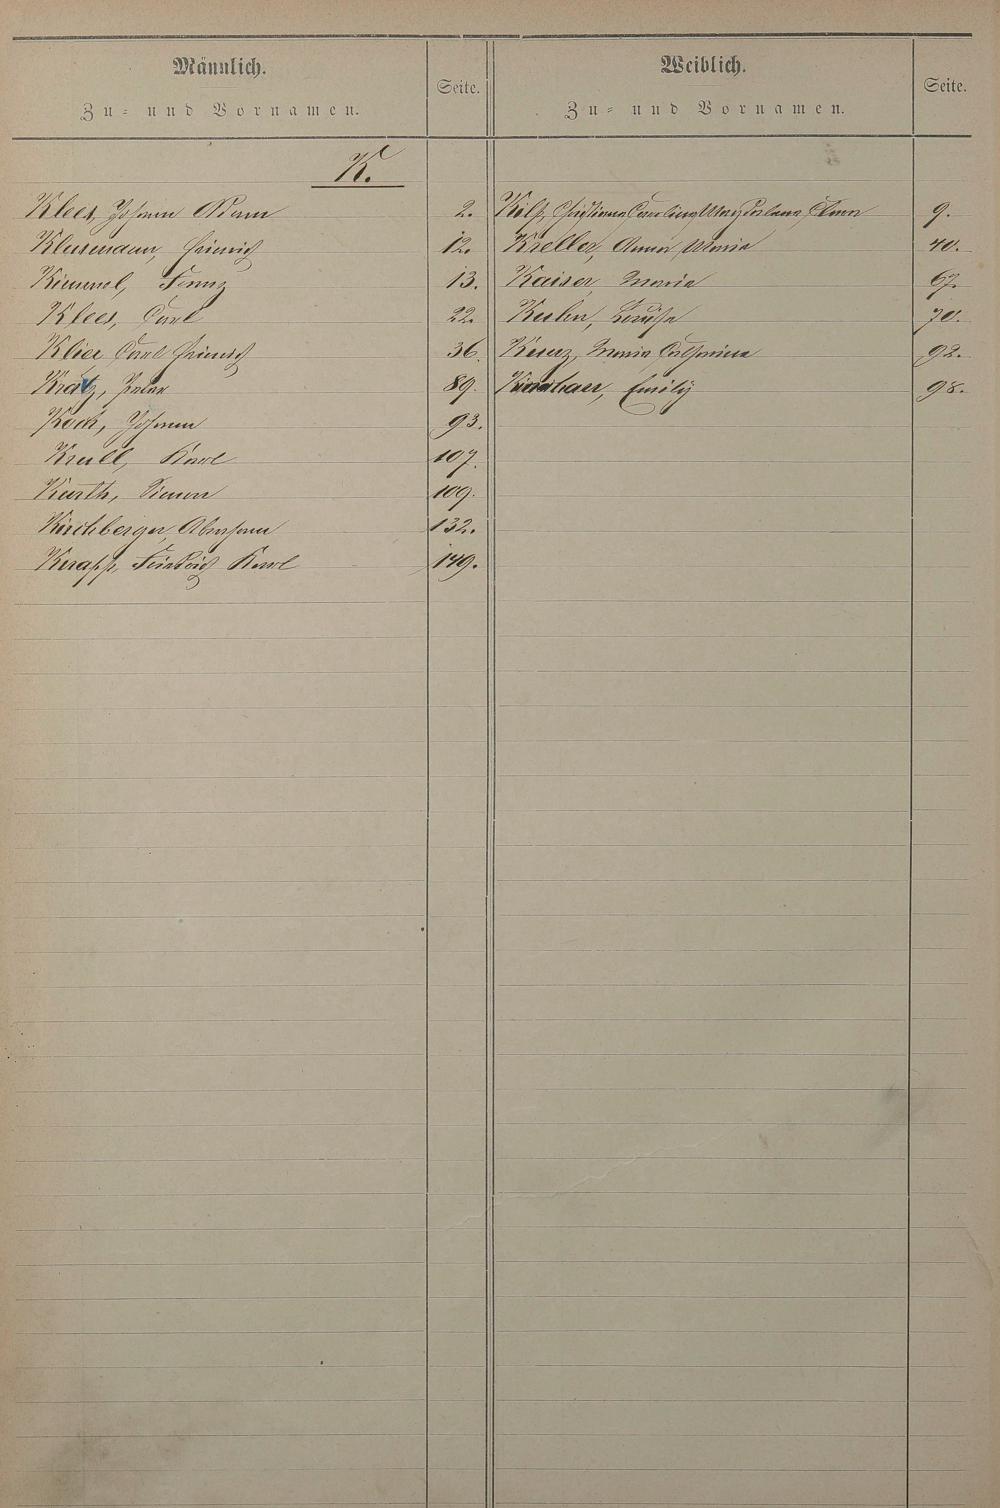 Männlich.
Zu- und Vornamen.
Seite.
Weiblich.
Zu- und Vornamen.
Seite.
K.
Klees, Johann Adam 2.
Klusmann, Heinrich 12.
Kimmel, Franz 13.
Klees, Carl 22.
Klier Carl Heinrich 36.
Kratz, Peter 89.
Koch, Johann 93.
Krull, Karl 107.
Kurth, Simon 109.
Kirchberger, Abraham 132.
Knapp, Friedrich Karl 149.
Kilp, Christiane Caroline 9.
Kreller, Anna Maria 40.
Kaiser, Maria 67.
Kuhn, Louise 70.
Kunz, Maria Catharina 92.
Emily 98.